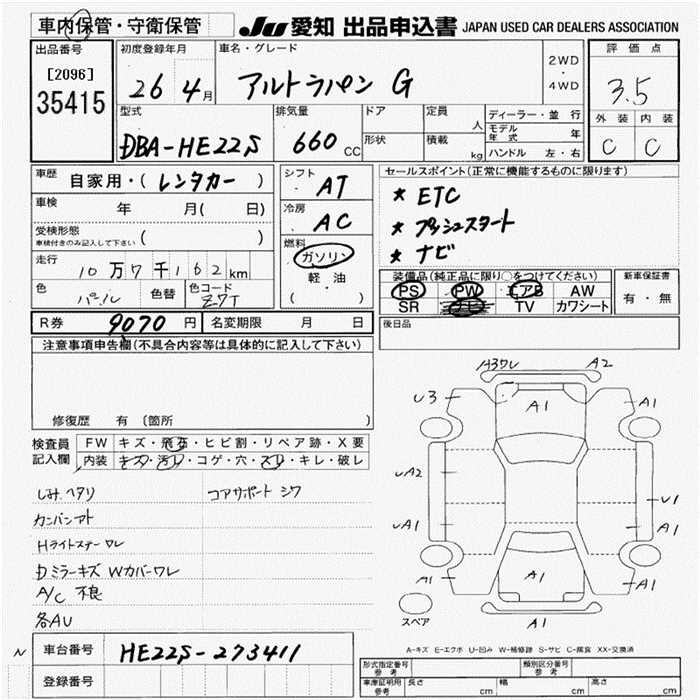 車内保管・守衛保管
JU 愛知 出品申込書 JAPAN USED CAR DEALERS ASSOCIATION
出品番号
[2096]
35415
初度登録年月
26 4月
車名・グレード
アルトラパン G
2WD
・
4WD
評価点
3.5
外装 内装
C C
型式
DBA-HE22S
排気量
660 CC
ドア
形状
定員
人
積載
kg
ディーラー・並行
モデル年式 年
ハンドル 左・右
車歴
自家用・(レンタカー)
車検
年 月( 日)
受検形態
車検付きのみ記入して下さい ( )
走行
10万7千162km
色
パール
色替
色コード
Z7T
シフト
AT
冷房
AC
燃料
ガソリン
軽・油
( )
セールスポイント(正常に機能するものに限ります)
* ETC
* プッシュスタート
* ナビ
装備品(純正品に限り○をつけてください)
PS PW エアB AW
SR ナビ TV カワシート
新車保証書
有・無
後日品
R券 9070円 名変期限 月 日
注意事項申告欄(不具合内容等は具体的に記入して下さい)
修復歴 有 〔箇所 〕
検査員記入欄
FW キズ・飛石・ヒビ割・リペア跡・X要
内装 キズ・汚れ・コゲ・穴・スレ・キレ・破レ
しみ ヘタリ
コアサポート シワ
カンバンアト
Hライトステー ワレ
Dミラーキズ Wカバーワレ
A/C 不良
各AU
A3ワレ A2
U3 A1 A1
UA2 U1
UA1 A1
A1 A1 A1
A1
スペア
A-キズ E-エクボ U-凹み W-補修跡 S-サビ C-腐食 XX-交換済
N
車台番号 HE22S-273411
登録番号
形式指定番号 参考
類別区分番号 参考
車庫証明用 参考
長さ cm 幅 cm 高さ cm